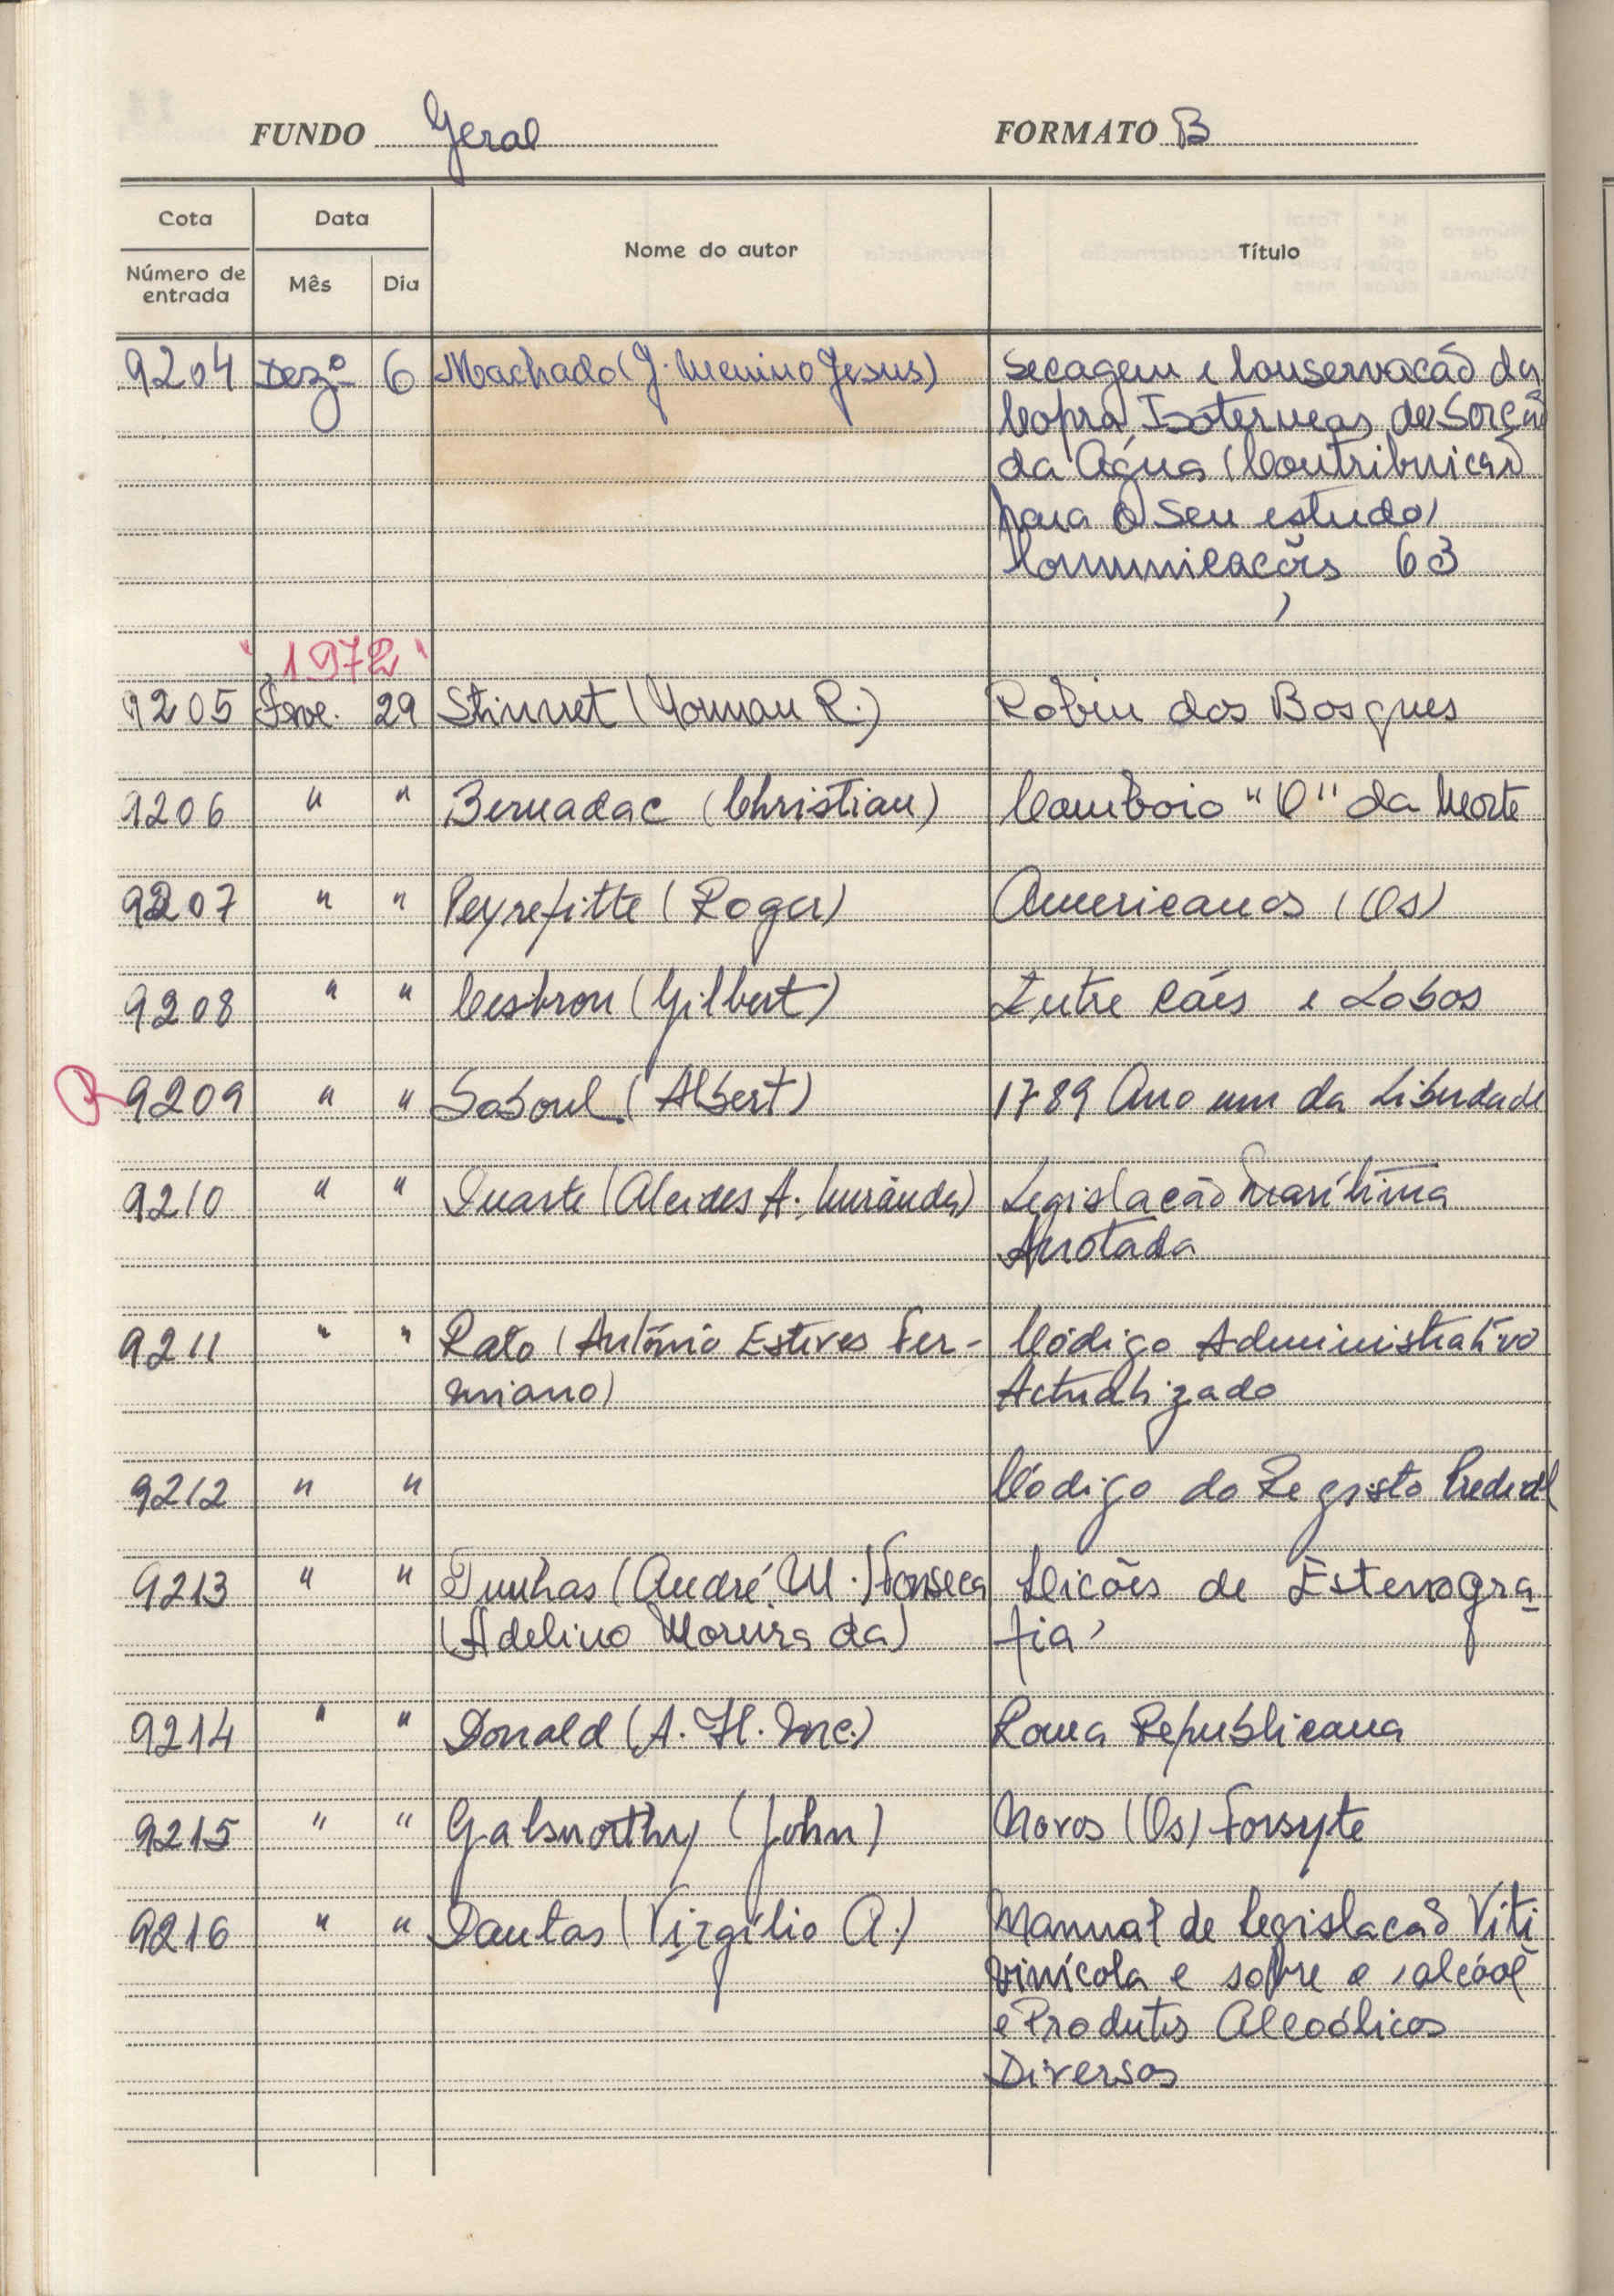 FUNDO Geral FORMATO B
Cota Data Nome do autor Título
Número de entrada Mês Dia
9204 Dezº 6 Machado (J. Menino Jesus) Secagem e Conservação da
Copra, Isotermas de Sorção
da Água (Contribuição
para o seu estudo)
Comunicações 63
" 1972 "
9205 Feve. 29 Stinnet (Yornan R.) Robin dos Bosques
9206 " " Bernadac (Christian) Comboio "O" da Morte
9207 " " Peyrefitte (Roger) Americanos (Os)
9208 " " Cesbron (Gilbert) Entre Cães e Lobos
R 9209 " " Soboul (Albert) 1789 Ano um da Liberdade
9210 " " Duarte (Alcides A. ) Legislação Marítima
Anotada
9211 " " Rato (António Esteves Fer-
miano) Código Administrativo
Actualizado
9212 " " Código do Registo Predial
9213 " " (André. M.) Fonseca Leições de Estenogra-
(Adelino Moreira da) fia
9214 " " Donald (A. H. Mc.) Roma Republicana
9215 " " Galsworthy (John) Novos (Os) Forsyte
9216 " " Dantas (Virgílio A.) Manual de Legislação Viti
vinícola e sobre o álcool
e Produtos Alcoólicos
Diversos